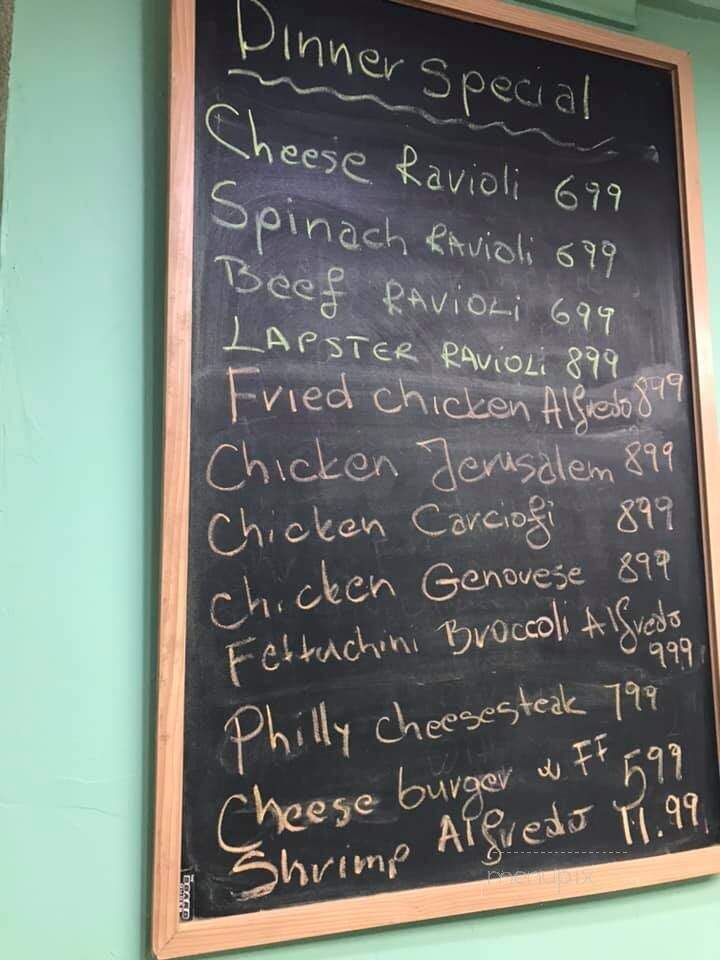 Dinner special
Cheese Ravioli 699
Spinach RAvioli 699
Beef RAVIOLI 699
LAPSTER RAViOLi 899
Fried chicken Alfredo 899
Chicken Jerusalem 899
Chicken Carciofi 899
Chicken Genovese 899
Fettuchini Broccoli Alfredo
999
Philly cheesesteak 799
Cheese burger w FF 599
Shrimp Alfredo 11.99
menupix